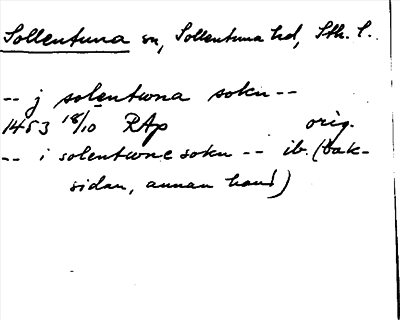 Sollentuna sn, Sollentuna hd, Sth. l.
-- j solentwna sokn --
1453 18/10 RAp orig.
-- i solentwne sokn -- ib. (bak-
sidan, annan hand)